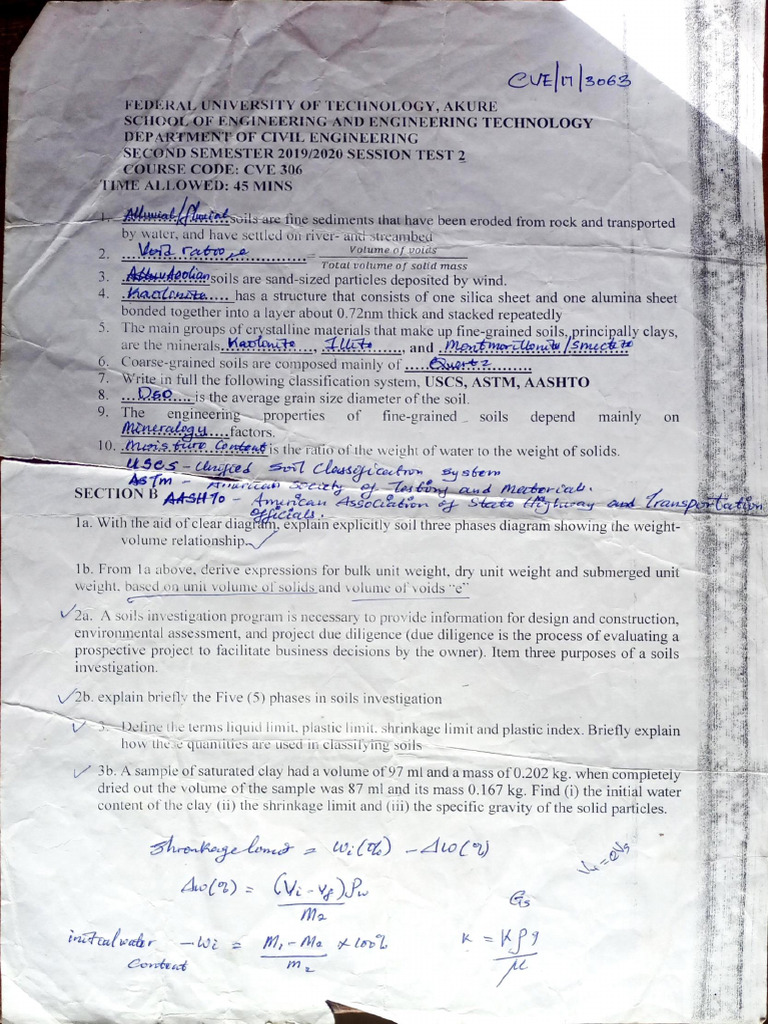 CVE/17/3063
FEDERAL UNIVERSITY OF TECHNOLOGY, AKURE
SCHOOL OF ENGINEERING AND ENGINEERING TECHNOLOGY
DEPARTMENT OF CIVIL ENGINEERING
SECOND SEMESTER 2019/2020 SESSION TEST 2
COURSE CODE: CVE 306
TIME ALLOWED: 45 MINS
1. Alluvial/fluvial soils are fine sediments that have been eroded from rock and transported
by water, and have settled on river- and streambed
2. Void ratio, e = Volume of voids / Total volume of solid mass
3. Aeolian soils are sand-sized particles deposited by wind.
4. Kaolinite has a structure that consists of one silica sheet and one alumina sheet
bonded together into a layer about 0.72nm thick and stacked repeatedly
5. The main groups of crystalline materials that make up fine-grained soils, principally clays,
are the minerals Kaolinite, Illite, and Montmorillonite/smectite
6. Coarse-grained soils are composed mainly of Quartz
7. Write in full the following classification system, USCS, ASTM, AASHTO
8. D50 is the average grain size diameter of the soil.
9. The engineering properties of fine-grained soils depend mainly on
Mineralogy factors.
10. Moisture Content is the ratio of the weight of water to the weight of solids.
USCS - Unified Soil Classification System
ASTM - American Society of Testing and Materials.
SECTION B AASHTO - American Association of State Highway and Transportation
officials.
1a. With the aid of clear diagram, explain explicitly soil three phases diagram showing the weight-
volume relationship.
1b. From 1a above, derive expressions for bulk unit weight, dry unit weight and submerged unit
weight, based on unit volume of solids and volume of voids "e"
2a. A soils investigation program is necessary to provide information for design and construction,
environmental assessment, and project due diligence (due diligence is the process of evaluating a
prospective project to facilitate business decisions by the owner). Item three purposes of a soils
investigation.
2b. explain briefly the Five (5) phases in soils investigation
3. Define the terms liquid limit, plastic limit, shrinkage limit and plastic index. Briefly explain
how these quantities are used in classifying soils
3b. A sample of saturated clay had a volume of 97 ml and a mass of 0.202 kg. when completely
dried out the volume of the sample was 87 ml and its mass 0.167 kg. Find (i) the initial water
content of the clay (ii) the shrinkage limit and (iii) the specific gravity of the solid particles.
Shrinkage limit = Wi(%) - ΔW(%)
Vv = eVs
ΔW(%) = (Vi - Vf)ρw / M2
Gs
initial water content - Wi = M1 - M2 / M2 × 100%
K = Kρg / μ